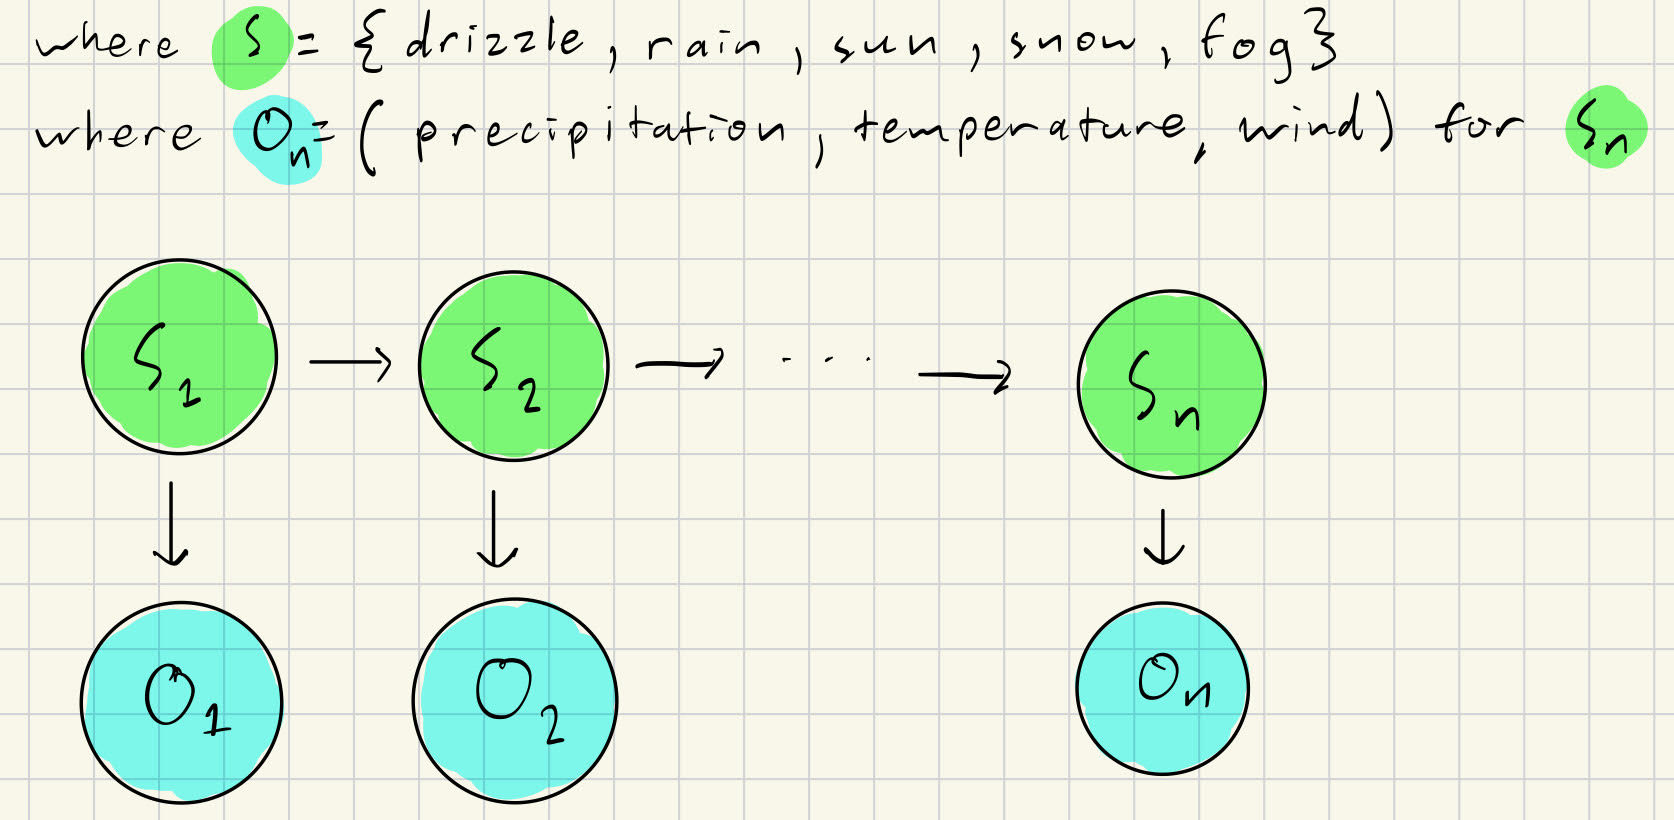 where S = { drizzle, rain, sun, snow, fog}
where O_n = ( precipitation, temperature, wind) for S_n
S_1 → S_2 → ... → S_n
↓ ↓ ↓
O_1 O_2 O_n